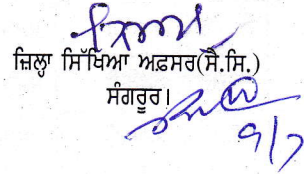 ਜ਼ਿਲ੍ਹਾ ਸਿੱਖਿਆ ਅਫ਼ਸਰ(ਸੈ.ਸਿ.)
ਸੰਗਰੂਰ।
9/7